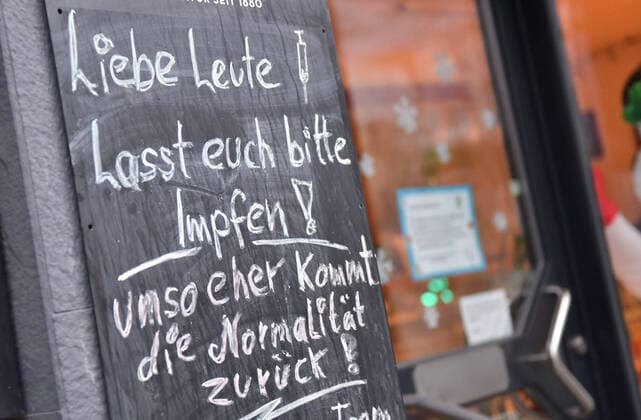 SEIT 1880
Liebe Leute
Lasst euch bitte
Impfen!
umso eher Kommt
die Normalität
zurück!